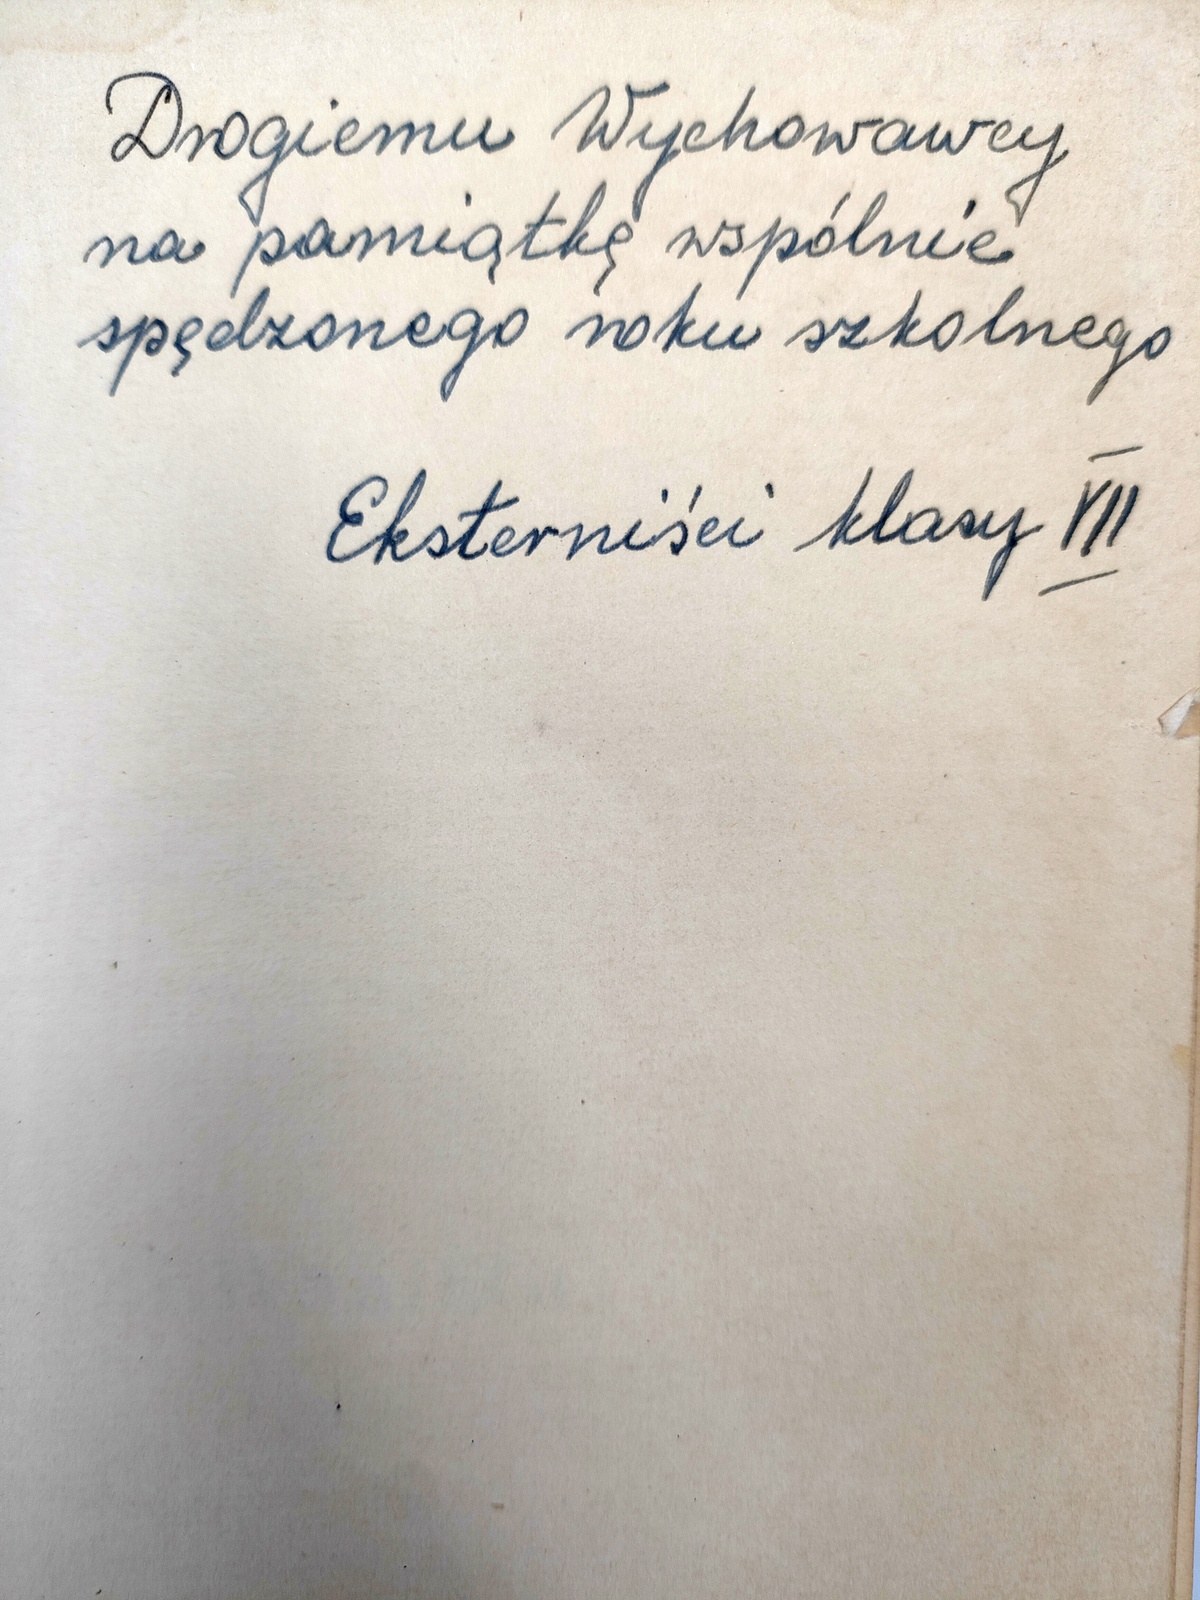 Drogiemu Wychowawcy
na pamiątkę wspólnie
spędzonego roku szkolnego
Eksterniści klasy VII